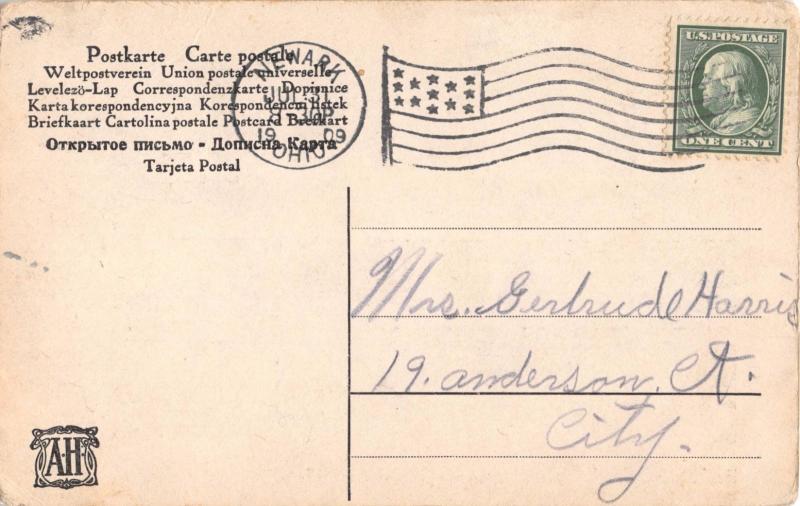 Postkarte Carte postale
Weltpostverein Union postale universelle
Levelező-Lap Correspondenzkarte Dopisnice
Karta korespondencyjna Korespondenční lístek
Briefkaart Cartolina postale Postcard Brefkort
Открытое письмо - Дописна Карта
Tarjeta Postal
NEWARK
1909
OHIO
U.S. POSTAGE
ONE CENT
Mrs. Gertrude Harris
19. anderson. St.
City.
A.H.